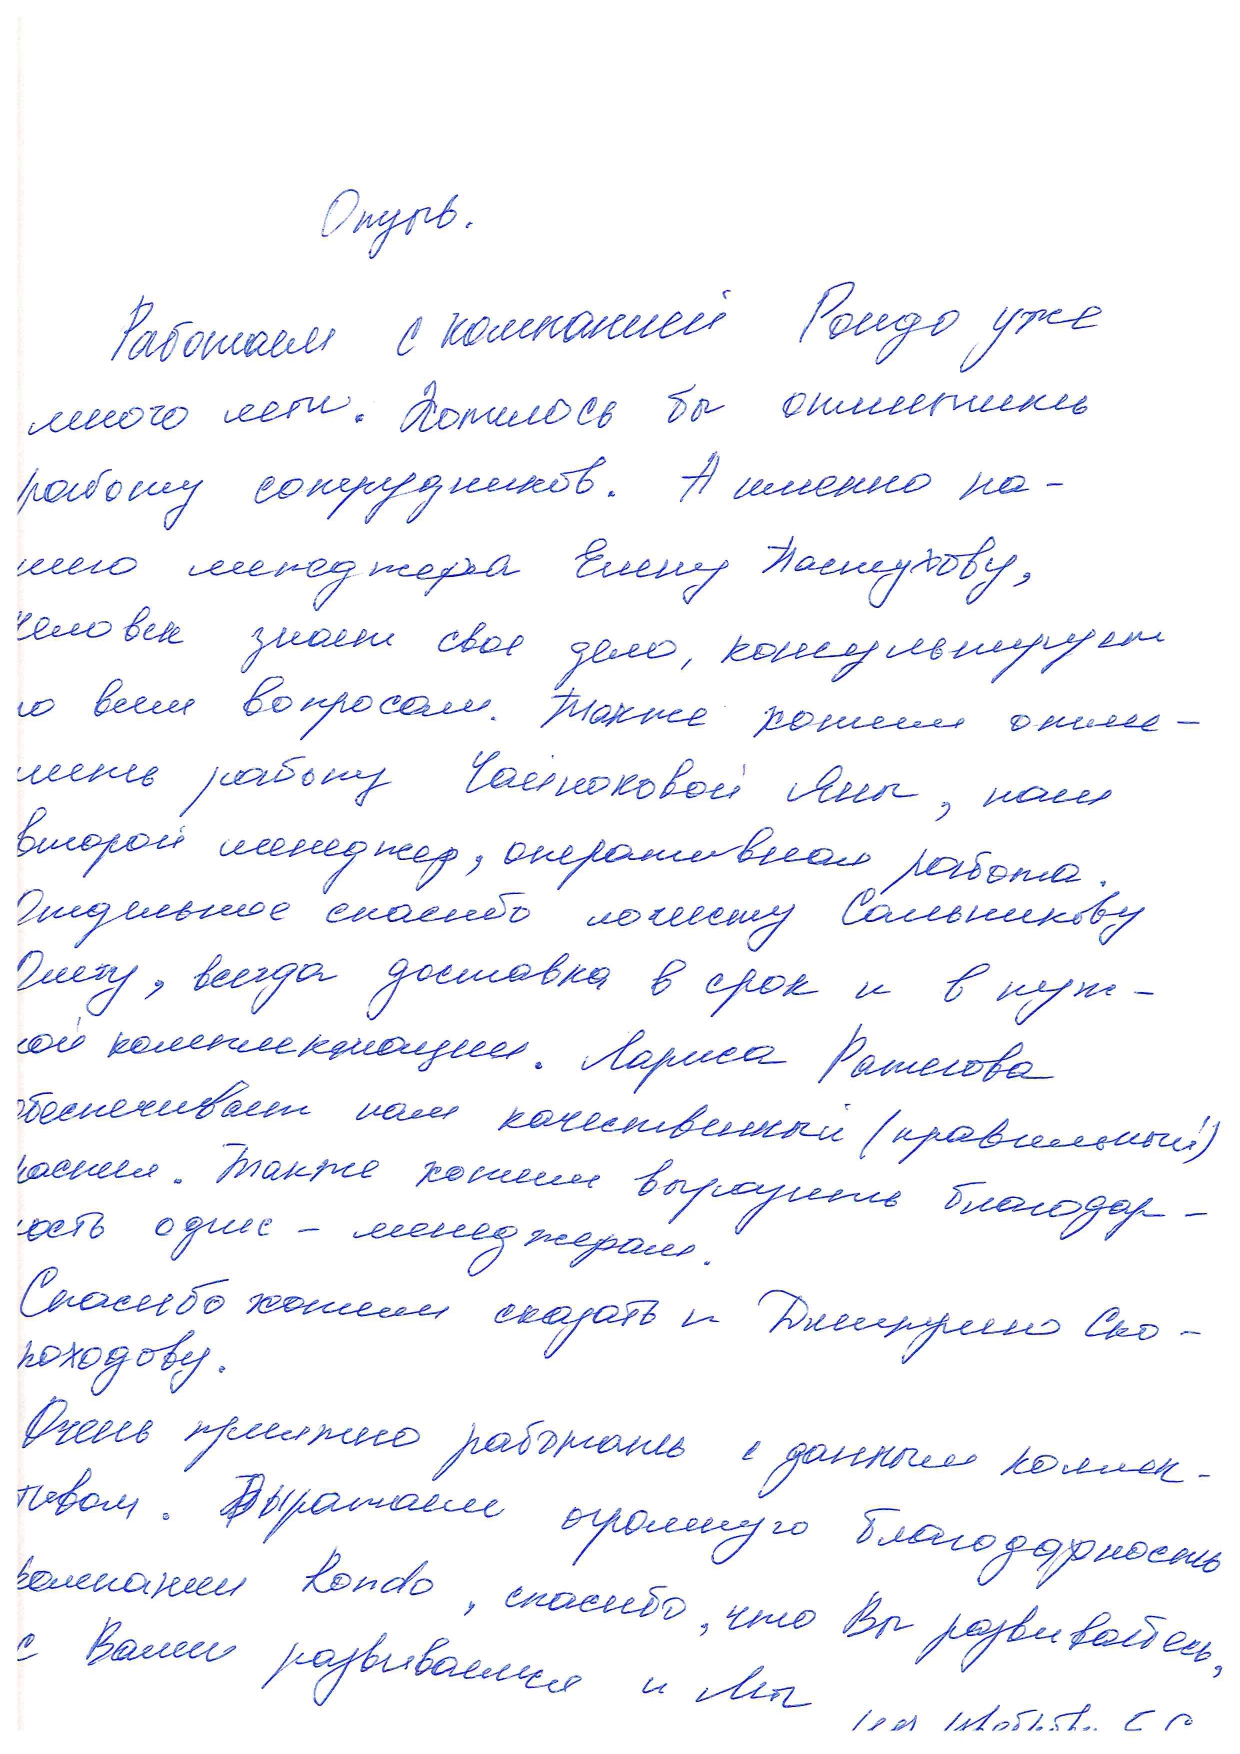 Отзыв.
Работаем с компанией Рондо уже
много лет. Хотелось бы отметить
работу сотрудников. А именно на-
шего менеджера Елену Пастухову,
человек знает свое дело, консультирует
по всем вопросам. Также хотим отме-
тить работу Чайнаковой Яны, наш
второй менеджер, оперативная работа.
Отдельное спасибо логисту Сальникову
Олегу, всегда доставка в срок и в нуж-
ной комплектации. Лариса
обеспечивает нам качественный (правильный)
распил. Также хотим выразить благодар-
ность офис-менеджерам.
Спасибо хотим сказать и Дмитрию Ско-
роходову.
Очень приятно работать с данным коллек-
тивом. Выражаем огромную благодарность
компании Rondo, спасибо, что Вы развиваетесь,
с Вами развиваемся и Мы